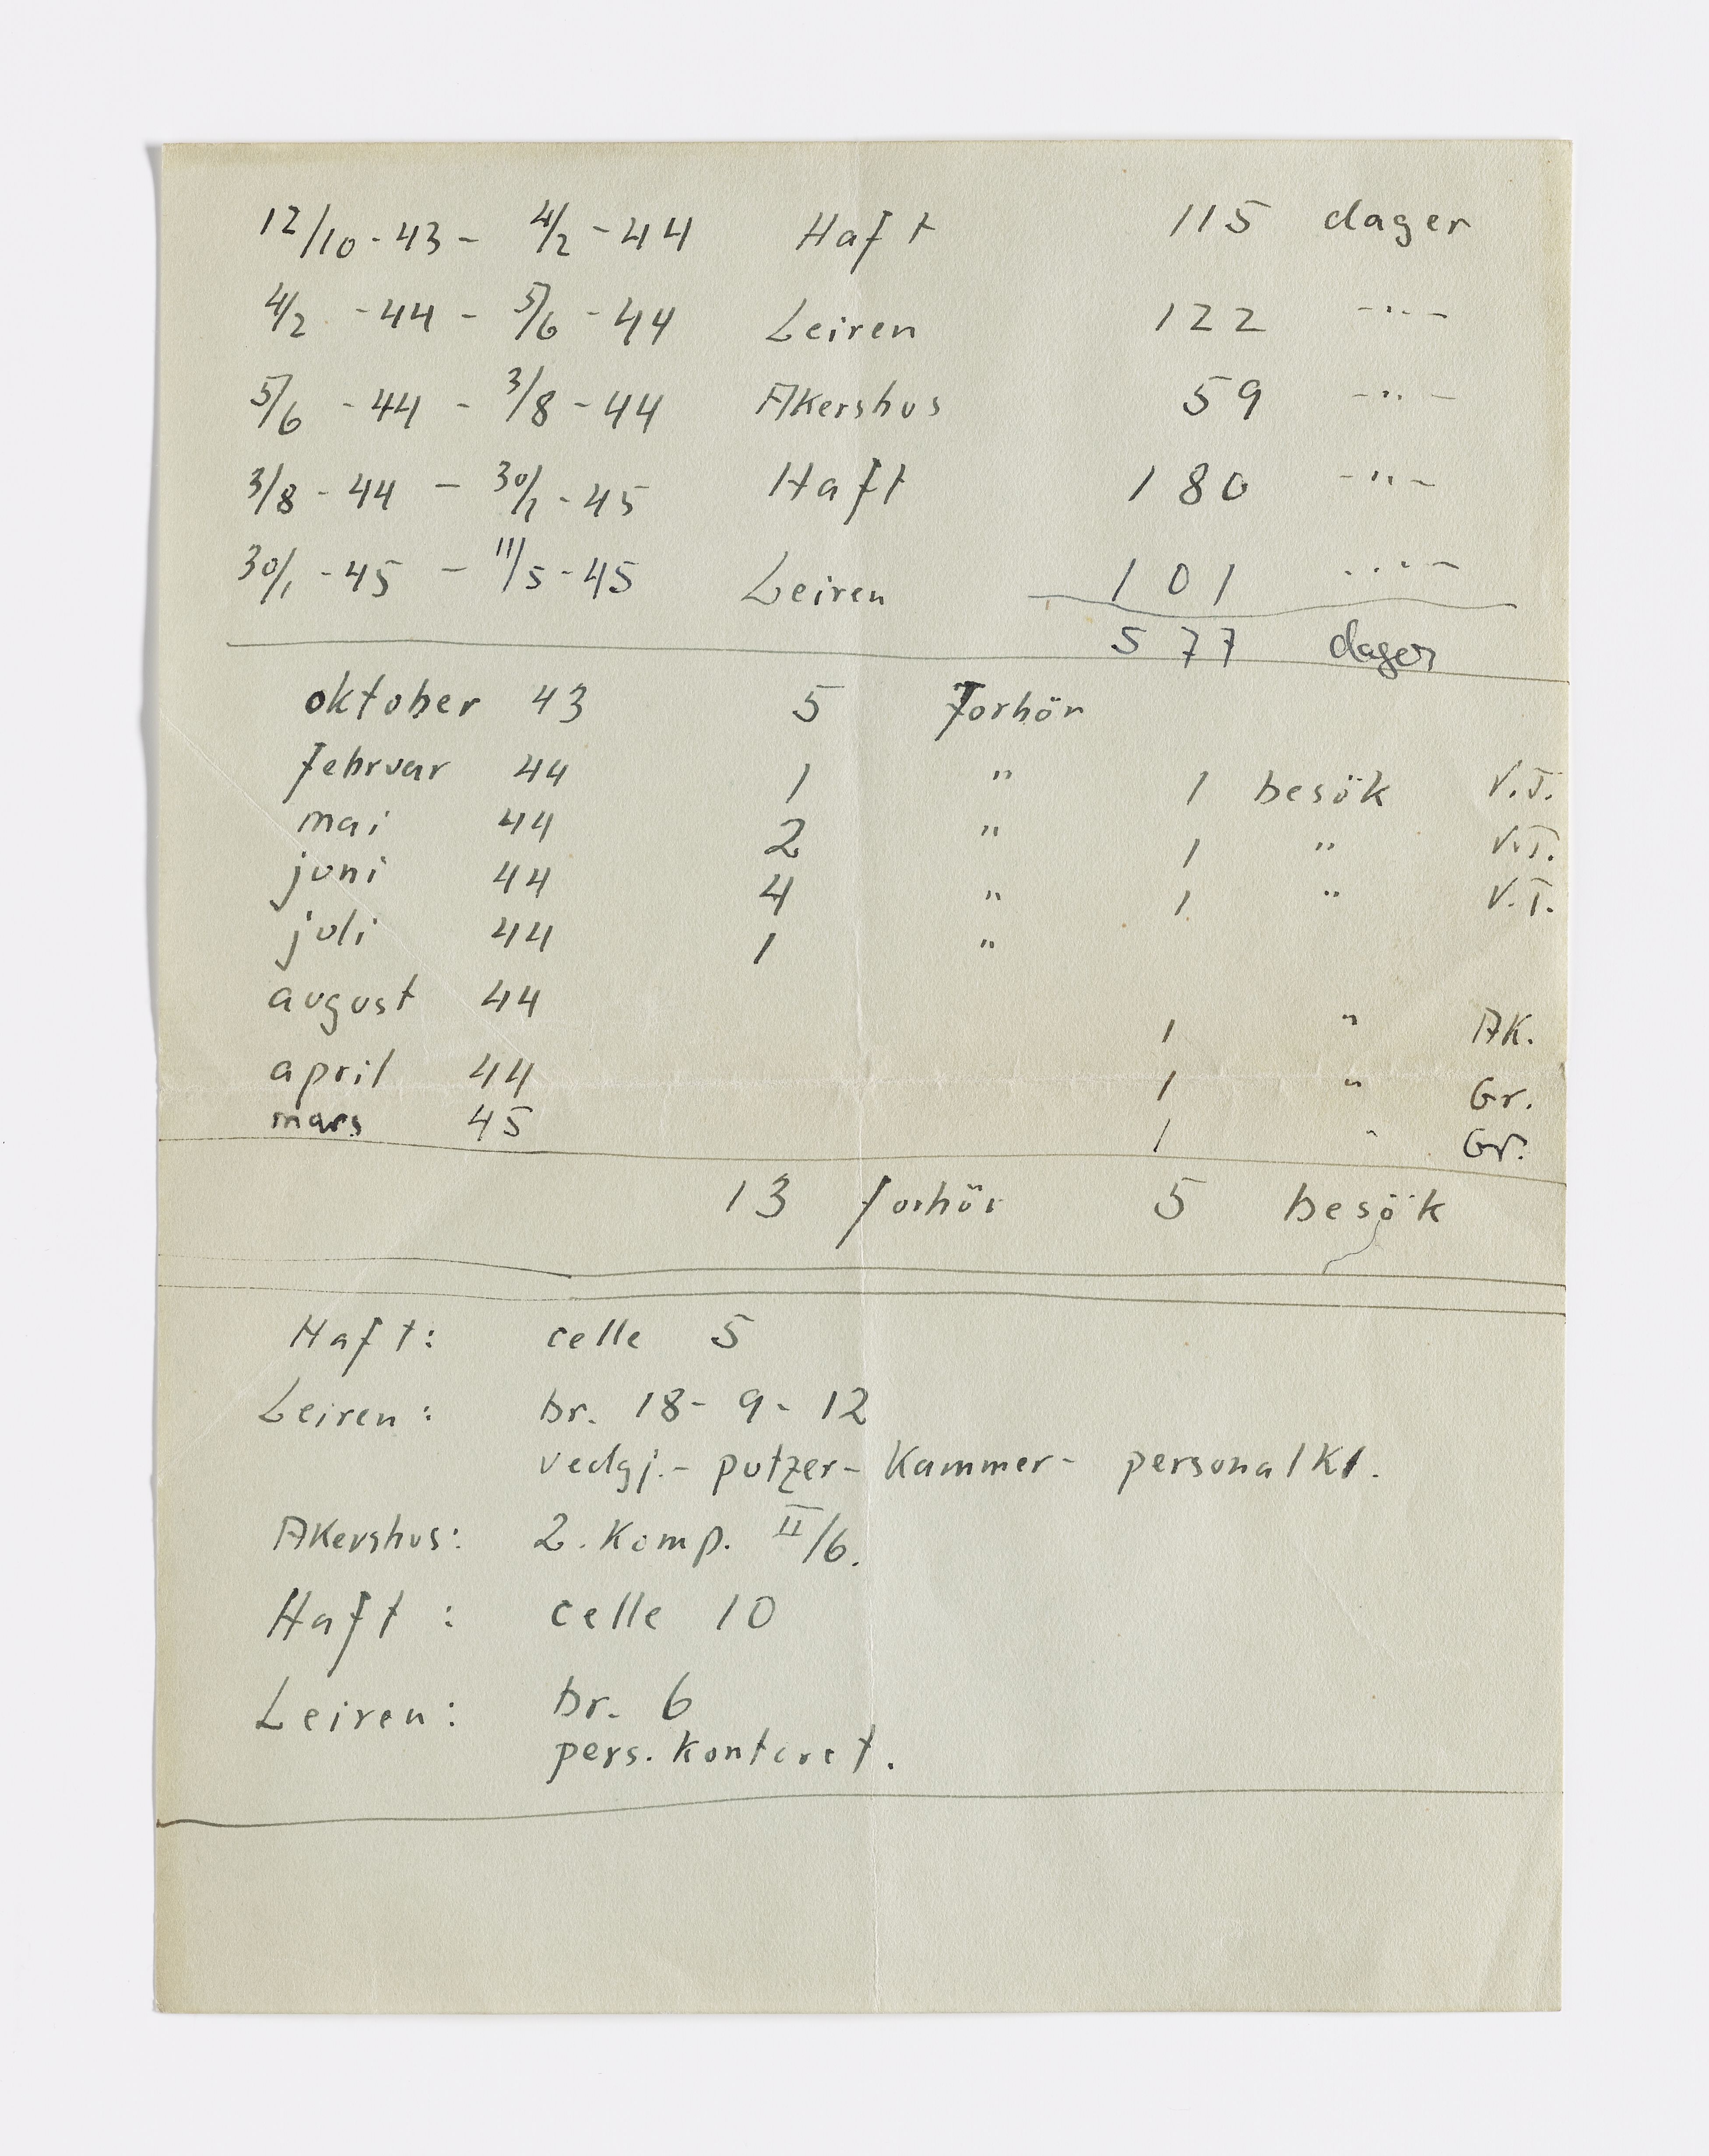 12/10-43 - 4/2-44 Haft 115 dager
4/2-44 - 5/6-44 Leiren 122 -"-
5/6-44 - 3/8-44 Akershus 59 -"-
3/8-44 - 30/1-45 Haft 180 -"-
30/1-45 - 11/5-45 Leiren 101 -"-
577 dager
oktober 43 5 forhör
februar 44 1 " 1 besök V.T.
mai 44 2 " 1 " V.T.
juni 44 4 " 1 " V.T.
juli 44 1 "
august 44 1 " AK.
april 44 1 " Gr.
mars 45 1 " Gr.
13 forhör 5 besök
Haft: celle 5
Leiren: br. 18-9-12
vedgj.- putzer- Kammer- personalkl.
Akershus: 2. Komp. II/6.
Haft: celle 10
Leiren: br. 6
pers. kontoret.